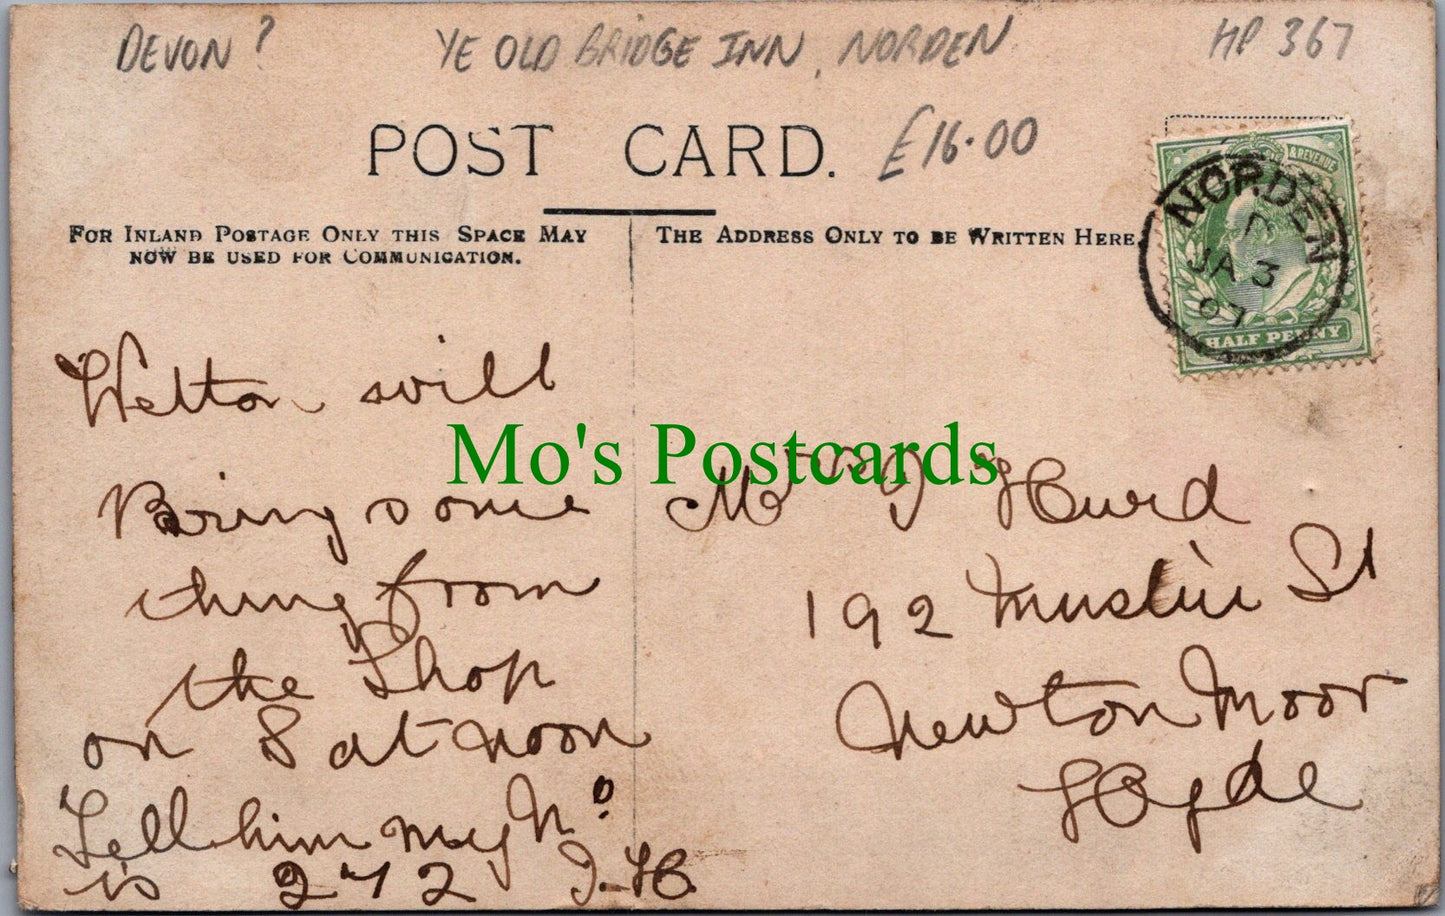 DEVON? YE OLD BRIDGE INN, NORDEN HP 367
POST CARD. £16.00
FOR INLAND POSTAGE ONLY THIS SPACE MAY
NOW BE USED FOR COMMUNICATION.
THE ADDRESS ONLY TO BE WRITTEN HERE
& REVENUE
NORDEN
JA 3
07
HALF PENNY
Welton will
Bring some
thing from
the Shop
on Sat noon
Tell him my No
is 272 J. H.
Mo's Postcards
Hurd
192 Muslin St
Newton Moor
Hyde